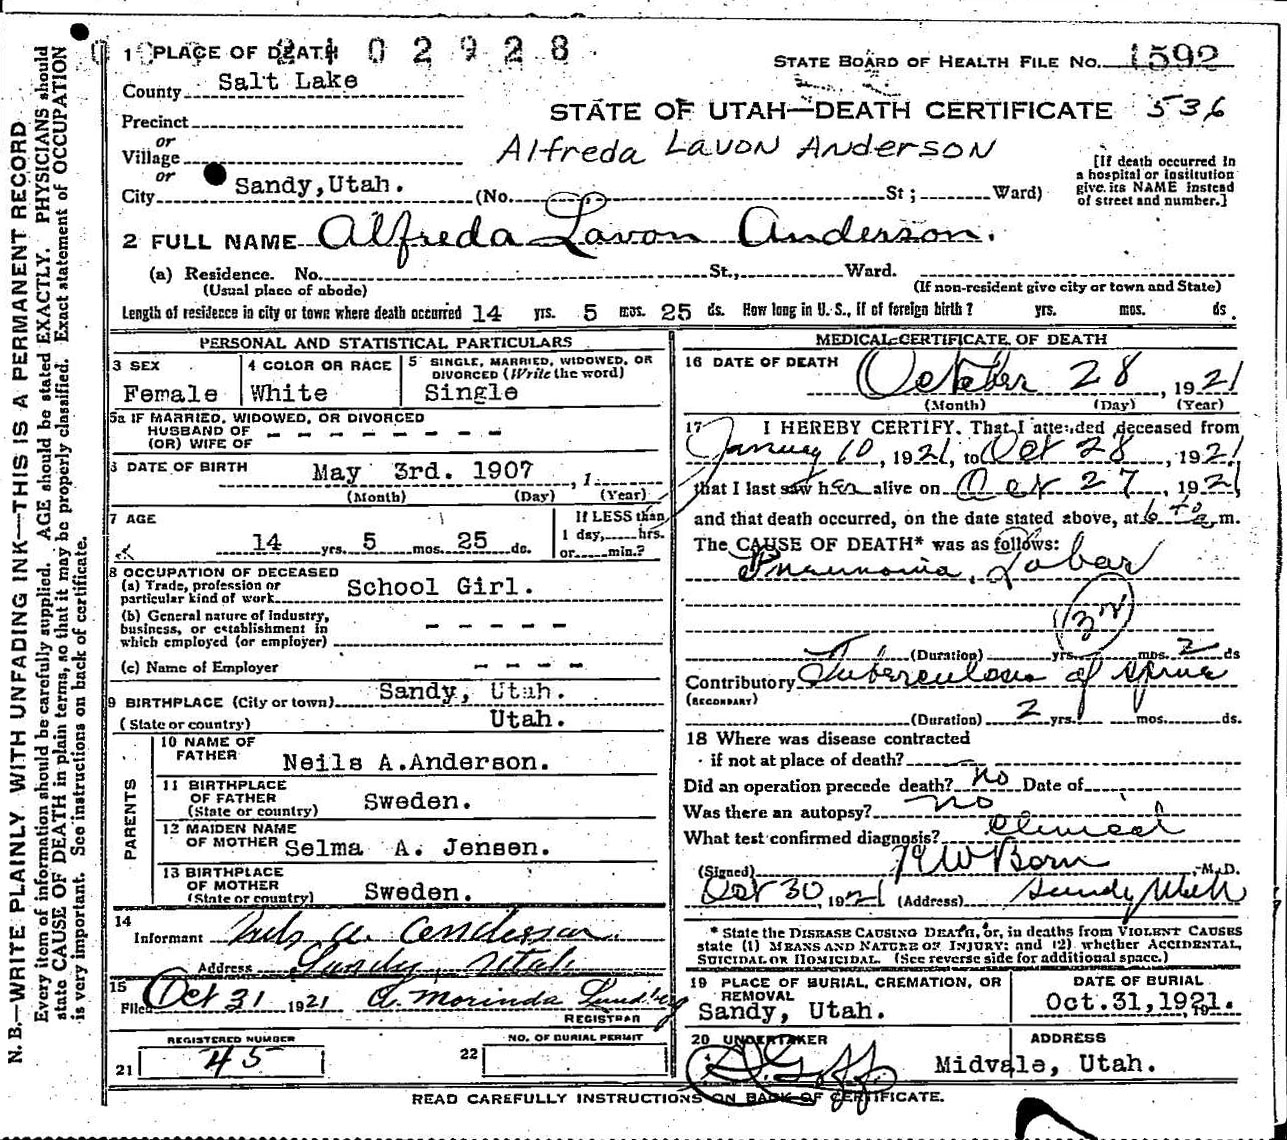 N. B.—WRITE PLAINLY, WITH UNFADING INK—THIS IS A PERMANENT RECORD
Every item of information should be carefully supplied. AGE should be stated EXACTLY. PHYSICIANS should
state CAUSE OF DEATH in plain terms, so that it may be properly classified. Exact statement of OCCUPATION
is very important. See instructions on back of certificate.
02928
1 PLACE OF DEATH
County Salt Lake
Precinct
or
Village
or
City Sandy, Utah. (No. St; Ward)
STATE BOARD OF HEALTH FILE No. 1592
STATE OF UTAH—DEATH CERTIFICATE 536
Alfreda Lavon Anderson
[If death occurred in
a hospital or institution
give its NAME instead
of street and number.]
2 FULL NAME Alfreda Lavon Anderson.
(a) Residence. No. St., Ward.
(Usual place of abode) (If non-resident give city or town and State)
Length of residence in city or town where death occurred 14 yrs. 5 mos. 25 ds. How long in U. S., if of foreign birth? yrs. mos. ds.
PERSONAL AND STATISTICAL PARTICULARS
3 SEX
Female
4 COLOR OR RACE
White
5 SINGLE, MARRIED, WIDOWED, OR
DIVORCED (Write the word)
Single
5a IF MARRIED, WIDOWED, OR DIVORCED
HUSBAND OF
(OR) WIFE OF
6 DATE OF BIRTH May 3rd. 1907 , 1
(Month) (Day) (Year)
7 AGE
14 yrs. 5 mos. 25 ds.
If LESS than
1 day, hrs.
or min.?
8 OCCUPATION OF DECEASED
(a) Trade, profession or
particular kind of work School Girl.
(b) General nature of industry,
business, or establishment in
which employed (or employer)
(c) Name of Employer
9 BIRTHPLACE (City or town) Sandy, Utah.
(State or country) Utah.
PARENTS
10 NAME OF
FATHER Neils A. Anderson.
11 BIRTHPLACE
OF FATHER
(State or country) Sweden.
12 MAIDEN NAME
OF MOTHER Selma A. Jensen.
13 BIRTHPLACE
OF MOTHER
(State or country) Sweden.
14
Informant Nels A. Anderson
Address Sandy, Utah
15
Filed Oct 31 1921 A. Morinda Lundberg
REGISTRAR
REGISTERED NUMBER
21 45
NO. OF BURIAL PERMIT
22
MEDICAL CERTIFICATE OF DEATH
16 DATE OF DEATH
October 28, 1921
(Month) (Day) (Year)
17 I HEREBY CERTIFY. That I attended deceased from
January 10, 1921, to Oct 28, 1921,
that I last saw her alive on Oct 27, 1921,
and that death occurred, on the date stated above, at 6 a. m.
The CAUSE OF DEATH* was as follows:
Pneumonia, Lobar
(Duration) yrs. mos. 2 ds
Contributory Tuberculosis of Spine
(SECONDARY)
(Duration) 2 yrs. mos. ds.
18 Where was disease contracted
if not at place of death?
Did an operation precede death? no Date of
Was there an autopsy? no
What test confirmed diagnosis? Clinical
(Signed) Born M. D.
Oct 30 1921 (Address) Sandy Utah
* State the DISEASE CAUSING DEATH, or, in deaths from VIOLENT CAUSES
state (1) MEANS AND NATURE OF INJURY; and (2) whether ACCIDENTAL,
SUICIDAL OR HOMICIDAL. (See reverse side for additional space.)
19 PLACE OF BURIAL, CREMATION, OR
REMOVAL
Sandy, Utah.
DATE OF BURIAL
Oct. 31, 1921. 19
20 UNDERTAKER
ADDRESS
Midvale, Utah.
READ CAREFULLY INSTRUCTIONS ON BACK OF CERTIFICATE.